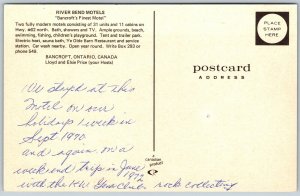 RIVER BEND MOTELS
"Bancroft's Finest Motel"
Two fully modern motels consisting of 31 units and 11 cabins on
Hwy. #62 north. Bath, showers and TV. Ample grounds, beach,
swimming, fishing, children's playground. Tent and trailer park.
Electric heat, sauna bath, Ye Olde Barn Restaurant and service
station. Car wash nearby. Open year round. Write Box 293 or
phone 549.
BANCROFT, ONTARIO, CANADA
Lloyd and Elsie Price (your Hosts)
PLACE
STAMP
HERE
postcard
ADDRESS
We stayed at this
Motel on our
holidays 1 week in
Sept 1970
and again on a
weekend trip in June
1972
with the KW Gem Club rock collecting
Canadian
product